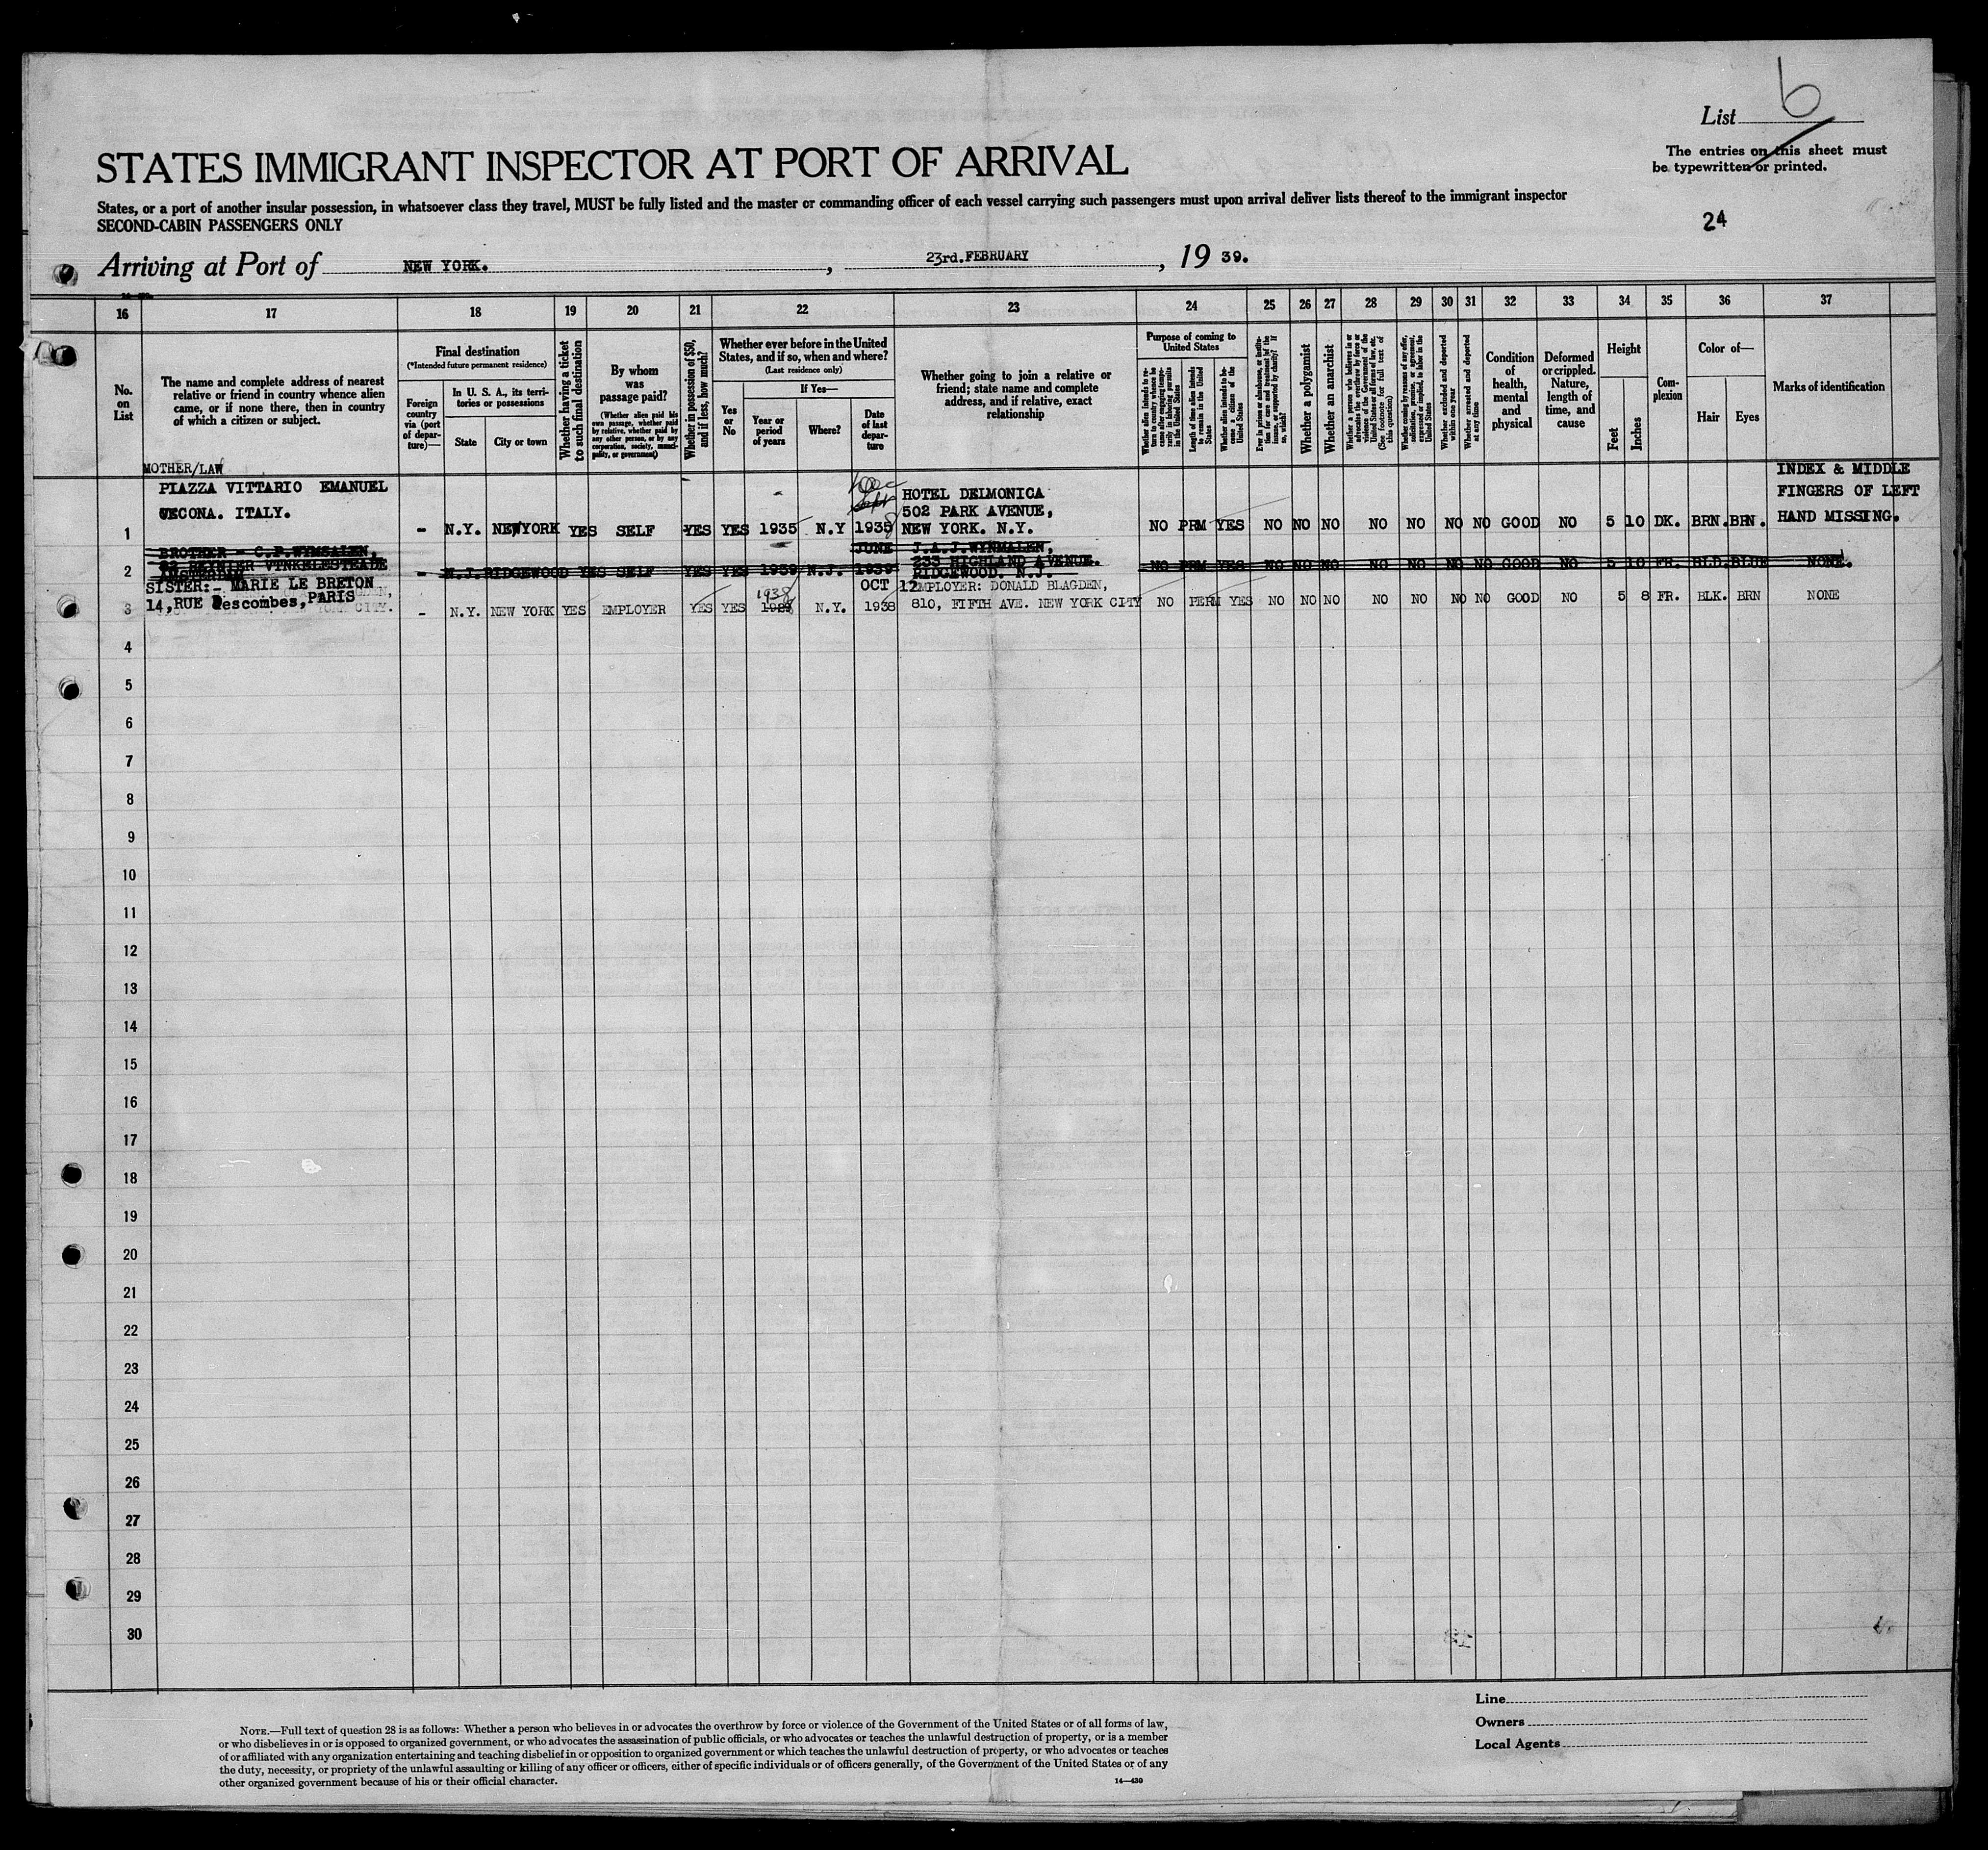 List 6
The entries on this sheet must
be typewritten or printed.
STATES IMMIGRANT INSPECTOR AT PORT OF ARRIVAL
States, or a port of another insular possession, in whatsoever class they travel, MUST be fully listed and the master or commanding officer of each vessel carrying such passengers must upon arrival deliver lists thereof to the immigrant inspector
SECOND-CABIN PASSENGERS ONLY
24
Arriving at Port of NEW YORK. , 23rd.FEBRUARY , 19 39.
16 17 18 19 20 21 22 23 24 25 26 27 28 29 30 31 32 33 34 35 36 37
No. on List
The name and complete address of nearest
relative or friend in country whence alien
came, or if none there, then in country
of which a citizen or subject.
Final destination
(*Intended future permanent residence)
Foreign country via (port of departure)—
In U. S. A., its territories or possessions
State
City or town
Whether having a ticket to such final destination
By whom was passage paid?
(Whether alien paid his own passage, whether paid by relative, whether paid by any other person, or by any corporation, society, municipality, or government)
Whether in possession of $50, and if less, how much?
Whether ever before in the United
States, and if so, when and where?
(Last residence only)
Yes or No
If Yes—
Year or period of years
Where?
Date of last departure
Whether going to join a relative or
friend; state name and complete
address, and if relative, exact
relationship
Purpose of coming to United States
Whether alien intends to return to country whence he came after engaging temporarily in laboring pursuits in the United States
Length of time alien intends to remain in the United States
Whether alien intends to become a citizen of the United States
Ever in prison or almshouse, or institution for care and treatment of the insane, or supported by charity? If so, which?
Whether a polygamist
Whether an anarchist
Whether a person who believes in or advocates the overthrow by force or violence of the Government of the United States or all forms of law, etc. (See footnote for full text of this question)
Whether coming by reason of any offer, solicitation, promise, or agreement, expressed or implied, to labor in the United States
Whether excluded and deported within one year
Whether arrested and deported at any time
Condition of health, mental and physical
Deformed or crippled. Nature, length of time, and cause
Height
Feet
Inches
Complexion
Color of—
Hair
Eyes
Marks of identification
MOTHER/LAW
PIAZZA VITTARIO EMANUEL
ECONA. ITALY.
1 - N.Y. NEWYORK YES SELF YES YES 1935 N.Y Dec 1938
HOTEL DELMONICA
502 PARK AVENUE,
NEW YORK. N.Y.
NO PRM YES NO NO NO NO NO NO NO GOOD NO 5 10 DK. BRN. BRN.
INDEX & MIDDLE
FINGERS OF LEFT
HAND MISSING.
BROTHER - C.P.WYMSALEN,
23 REINIER VINKELESTEADE
AMSTERDAM
2 - N.J. RIDGEWOOD YES SELF YES YES 1939 N.J. JUNE 1939
J.A.J.WYNMALEN,
233 HIGHLAND AVENUE.
RIDGEWOOD. N.J.
NO PRM YES NO NO NO NO NO NO NO GOOD NO 5 10 FR. BLD. BLUE NONE.
SISTER:- MARIE LE BRETON
14,RUE Descombes, PARIS
3 - N.Y. NEW YORK YES EMPLOYER YES YES 1938 N.Y. OCT 12 1938
EMPLOYER: DONALD BLAGDEN,
810, FIFTH AVE. NEW YORK CITY
NO PERM YES NO NO NO NO NO NO NO GOOD NO 5 8 FR. BLK. BRN NONE
4
5
6
7
8
9
10
11
12
13
14
15
16
17
18
19
20
21
22
23
24
25
26
27
28
29
30
Line
Owners
Local Agents
NOTE.—Full text of question 28 is as follows: Whether a person who believes in or advocates the overthrow by force or violence of the Government of the United States or of all forms of law,
or who disbelieves in or is opposed to organized government, or who advocates the assassination of public officials, or who advocates or teaches the unlawful destruction of property, or is a member
of or affiliated with any organization entertaining and teaching disbelief in or opposition to organized government or which teaches the unlawful destruction of property, or who advocates or teaches
the duty, necessity, or propriety of the unlawful assaulting or killing of any officer or officers, either of specific individuals or of officers generally, of the Government of the United States or of any
other organized government because of his or their official character.
14—430